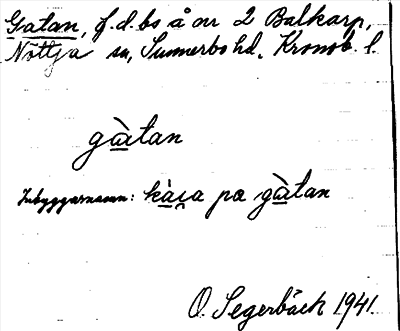 Gatan, f.d. bs å nr 2 Balkarp,
Nöttja sn, Sunnerbo hd, Kronob. l.
gàtan
Inbyggarnamn: pœ gàtan
O. Segerbäck 1941.